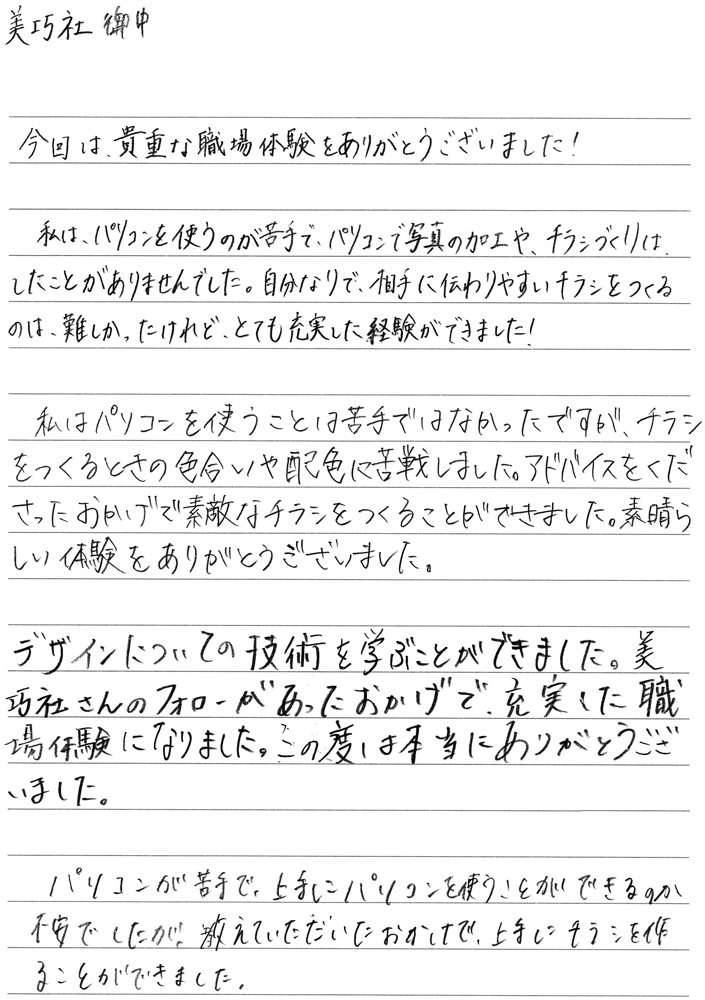 美巧社 御中
今回は、貴重な職場体験をありがとうございました!
私は、パソコンを使うのが苦手で、パソコンで写真の加工や、チラシづくりは、
したことがありませんでした。自分なりで、相手に伝わりやすいチラシをつくる
のは、難しかったけれど、とても充実した経験ができました!
私はパソコンを使うことは苦手ではなかったですが、チラシ
をつくるときの色合いや配色に苦戦しました。アドバイスをくだ
さったおかげで素敵なチラシをつくることができました。素晴ら
しい体験をありがとうございました。
デザインについての技術を学ぶことができました。美
巧社さんのフォローがあったおかげで、充実した職
場体験になりました。この度は本当にありがとうござ
いました。
パソコンが苦手で、上手にパソコンを使うことができるのか
不安でしたが、教えていただいたおかげで、上手にチラシを作
ることができました。